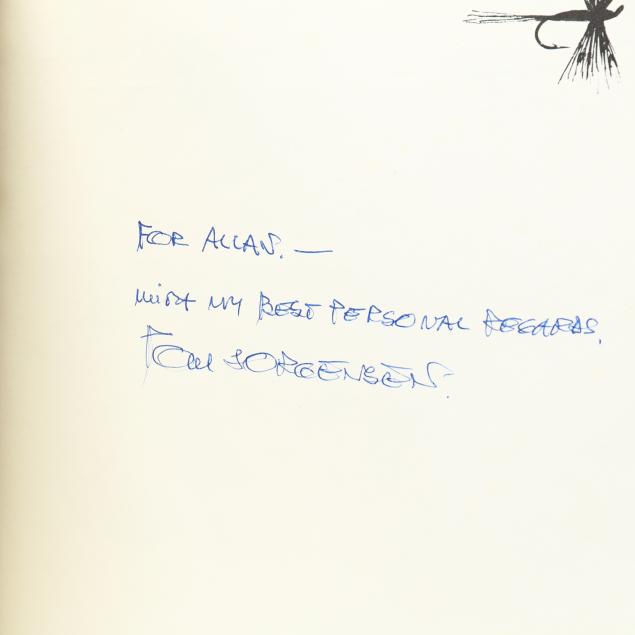 FOR ALLAN. —
WITH MY BEST PERSONAL REGARDS.
JORGENSEN.